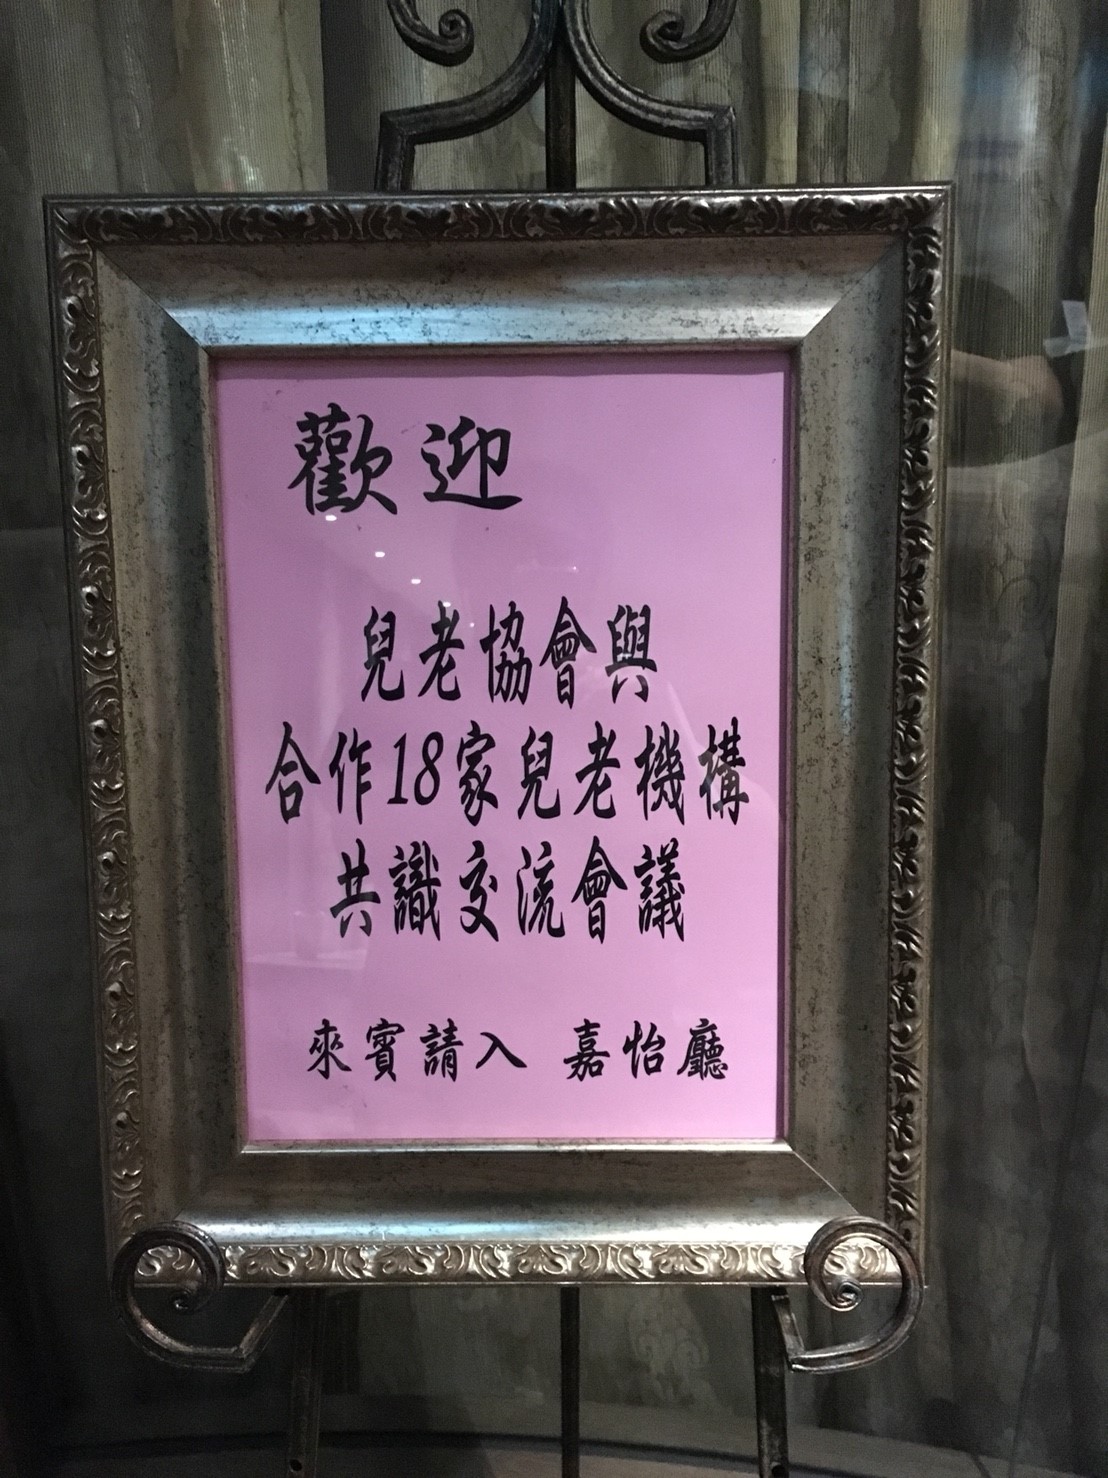 歡迎
兒老協會與
合作18家兒老機構
共識交流會議
來賓請入 嘉怡廳